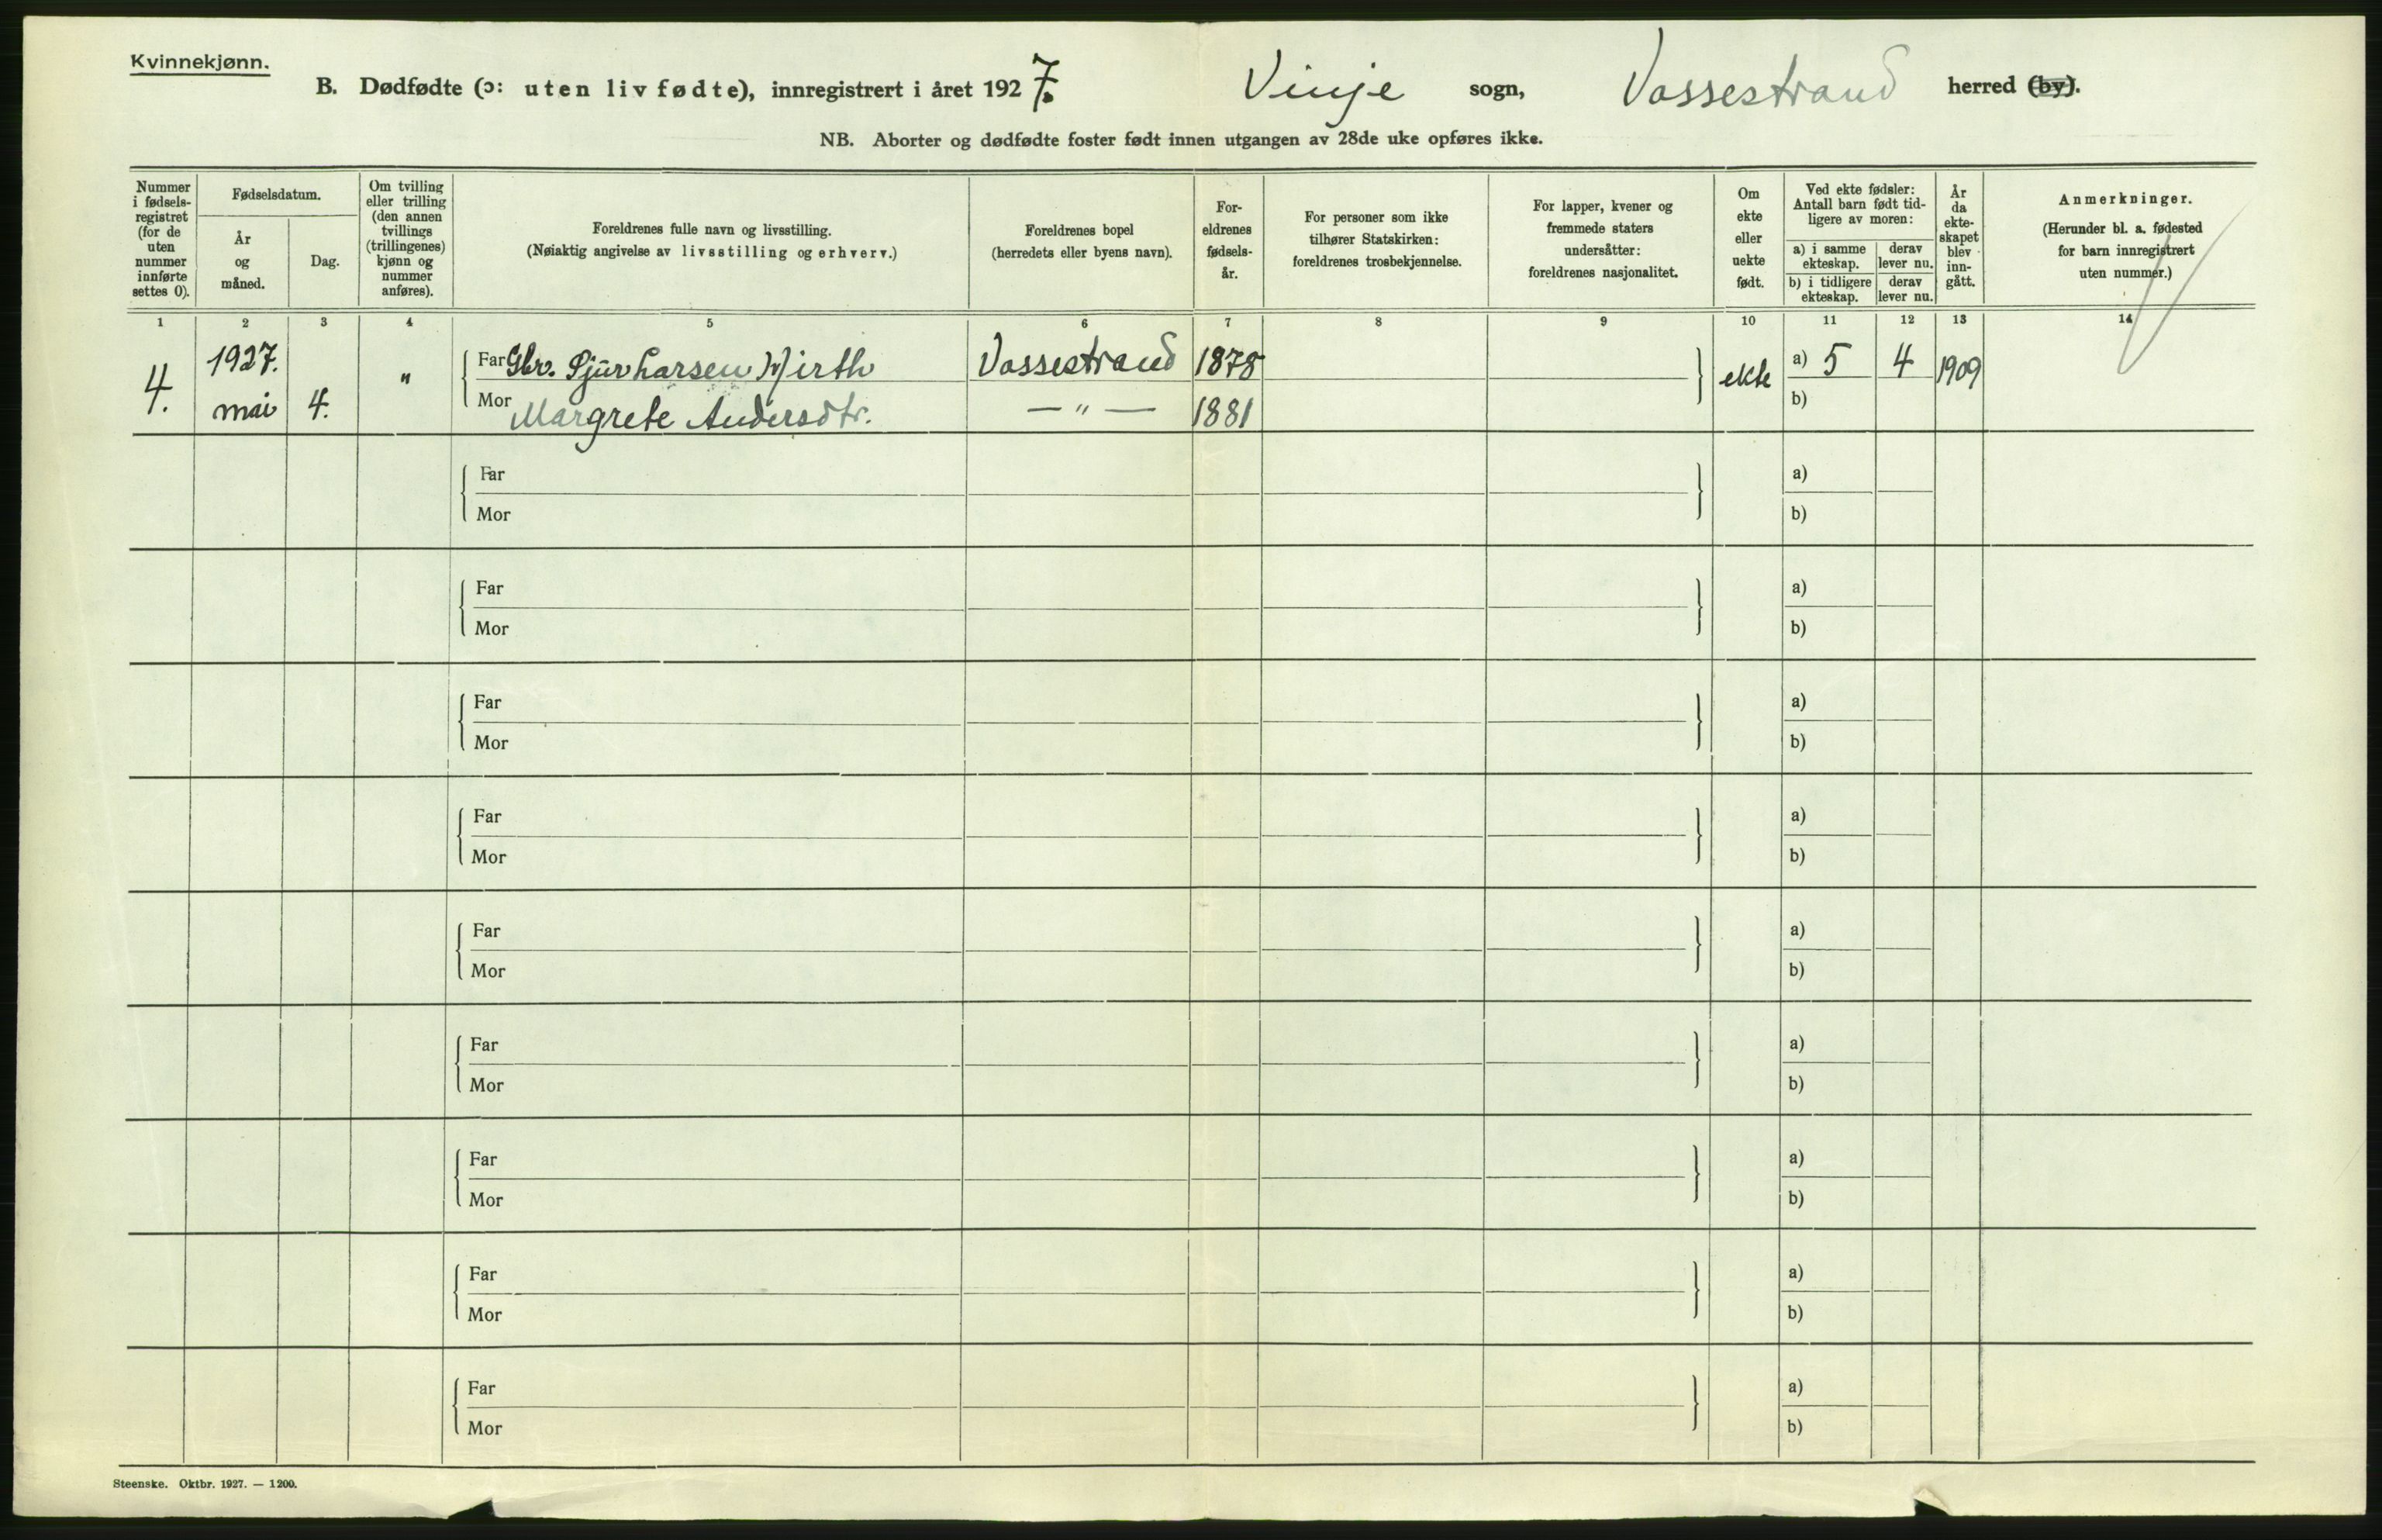 Kvinnekjønn.
B. Dødfødte (ɔ: uten liv fødte), innregistrert i året 1927. Vinje sogn, Vossestrand herred (by).
NB. Aborter og dødfødte foster født innen utgangen av 28de uke opføres ikke.
Nummer
i fødsels-
registret
(for de
uten
nummer
innførte
settes 0).
Fødselsdatum.
År
og
måned.
Dag.
Om tvilling
eller trilling
(den annen
tvillings
(trillingenes)
kjønn og
nummer
anføres).
Foreldrenes fulle navn og livsstilling.
(Nøiaktig angivelse av livsstilling og erhverv.)
Foreldrenes bopel
(herredets eller byens navn).
For-
eldrenes
fødsels-
år.
For personer som ikke
tilhører Statskirken:
foreldrenes trosbekjennelse.
For lapper, kvener og
fremmede staters
undersåtter:
foreldrenes nasjonalitet.
Om
ekte
eller
uekte
født.
Ved ekte fødsler:
Antall barn født tid-
ligere av moren:
a) i samme
ekteskap.
derav
lever nu.
b) i tidligere
ekteskap.
derav
lever nu.
År
da
ekte-
skapet
blev
inn-
gått.
Anmerkninger.
(Herunder bl. a. fødested
for barn innregistrert
uten nummer.)
1 2 3 4 5 6 7 8 9 10 11 12 13 14
4. 1927. mai 4. "
Far Gbr. Sjur Larsen Vossestrand 1878 ekte a) 5 4 1909
Mor Margrete Andersdtr. — " — 1881 b)
Far a)
Mor b)
Far a)
Mor b)
Far a)
Mor b)
Far a)
Mor b)
Far a)
Mor b)
Far a)
Mor b)
Far a)
Mor b)
Far a)
Mor b)
Far a)
Mor b)
Steenske. Oktbr. 1927. — 1200.